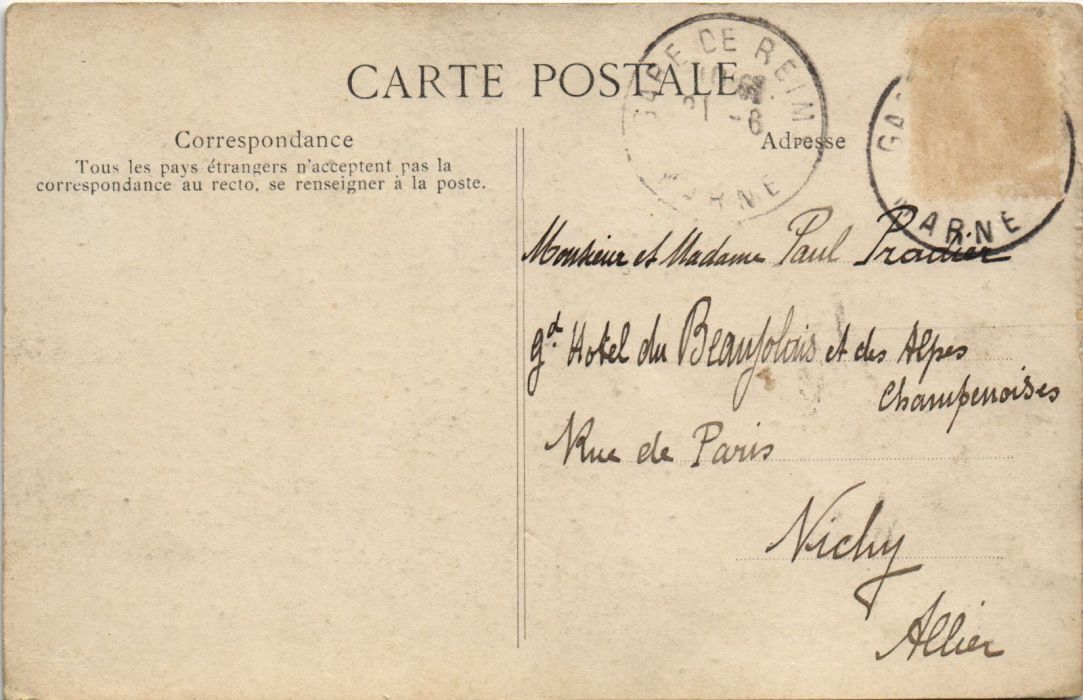 CARTE POSTALE
Correspondance
Tous les pays étrangers n'acceptent pas la
correspondance au recto, se renseigner à la poste.
Adresse
GARE DE REIMS
21 -8
MARNE
MARNE
Monsieur et Madame Paul Pradier
gd. Hotel du Beaujolais et des Alpes
Champenoises
Rue de Paris
Vichy
Allier